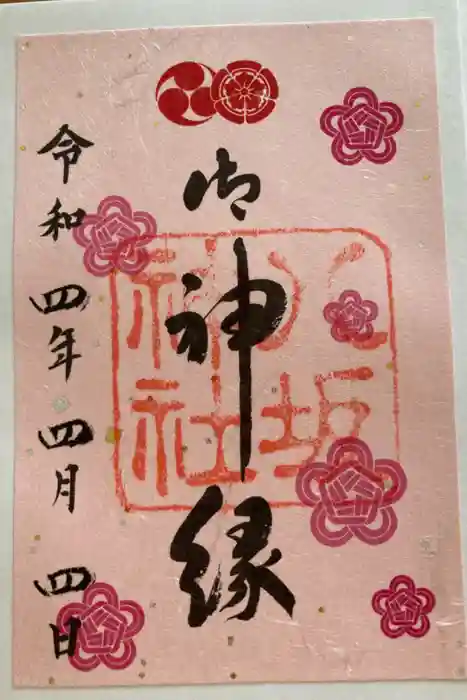 御神縁
八坂
神社
令和四年四月四日